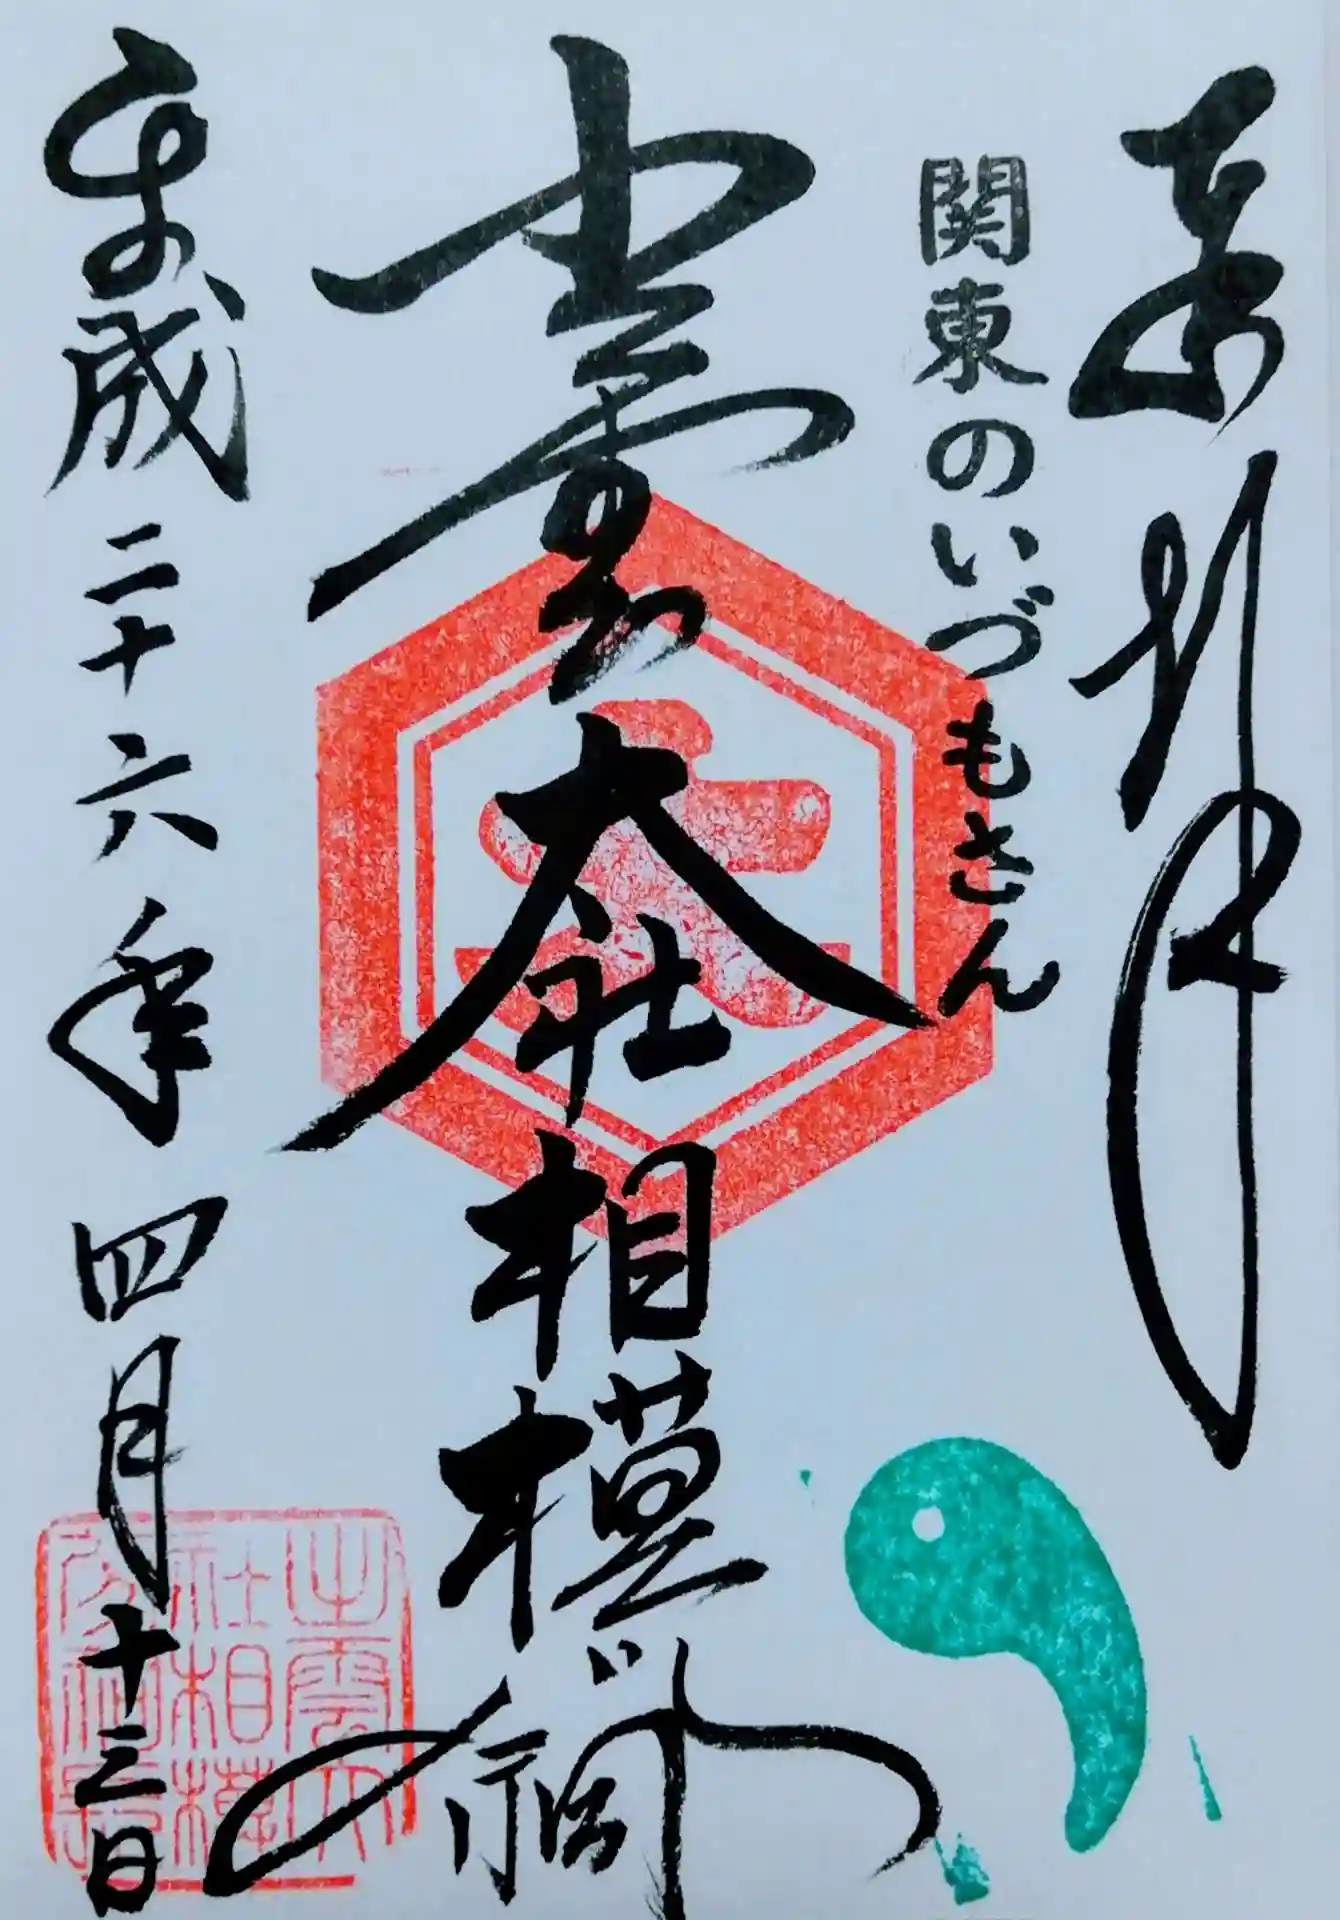 奉拝
関東のいづもさん
出雲大社相模分祠
平成二十六年四月十三日
出雲大
社相模
分祠長